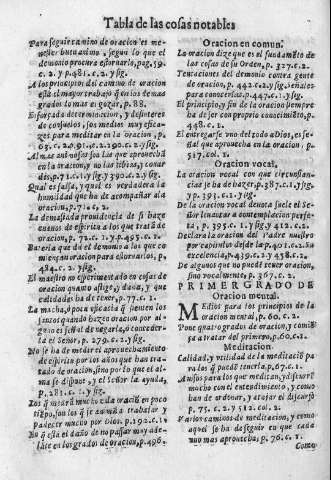 Tabla de las cosas notables
Para seguir camino de oracion es me-
nester buen animo, segun lo que el
demonio procura estoruarlo, pag. 59.
c. 2. y p. 481. c. 2. y sig.
A los principios del camino de oracion
está el mayor trabajo q̃ en los demas
grados lo mas es gozar, p. 88.
Esforçada determinacion, y desinteres
de consuelos, los medios mas eficaz-
ges para meditar en la oracion, p.
63.
en la oracion, y no las tibias, y conar-
des, p. 71. c. 1. y sig. y 390. c. 2. y sig.
Qual es falsa, y qual es verdadera la
humildad que ha de acompañar al a
oracion, p. 71. c. 2.
La demasiada prouidencia de si haze
menos de espiritu a los que tratã de
oracion, p. 72. c. 1. y p. 495. c. 2.
Bateria que da el demonio a los que co-
miençan oracion para estoruarlos, p.
484. c. 2. y sig.
El maestro no esperimentado en cosas de
oracion quanto aflige, y daña, y que
calidades ha de tener, p. 77. c. 1.
La mucha, y poca eficacia q̃ sienten los
justos quando hazen oracion por al-
go es señal de negarla, ò conceder-
la el Señor, p. 279. c. 2. y sig.
No se ha de medir el aprouechamiento
de espiritu por los años que han tra-
tado de oracion, sino por lo que el al-
ma se dispuso, y el Señor la ayuda,
p. 281. c. 1. y sig.
Los q̃ medrã mucho ẽ la oraciõ en poco
tiẽpo, son los q̃ se animã a trabajar y
padecer mucho por Dios, p. 192. c. 1.
En q̃ está el daño de no passar muy ade-
lante en los grados de oracion, p. 496.
Oracion en comun.
La oracion dize que es el fundamẽto de
las cosas de su Orden, p. 327. c. 2.
Tentaciones del demonio contra gente
de oracion, p. 442. c. 2. y sig. señales
para conocerlas, p. 447. c. 1. y sig.
El principio, y fin de la oracion siempre
ha de ser con proprio conocimiẽto, p.
448. c. 1.
El entregarse vno del todo a Dios, es se-
ñal que aprouecha en la oracion, p.
517. col. 1.
Oracion vocal.
La oracion vocal con que circunstan-
cias se ha de hazer, p. 387. c. 1. y sig.
y p. 393. c. 1. y sig.
De la oracion vocal deuota suele el Se-
ñor leuantar a contemplacion perfe-
ta, p. 395. c. 1. y sig. y 412. c. 2.
Declara la oracion del Padre nuestro
por capitulos desde la p. 401. c. 2. su
excelencia, p. 439. c. 2. y 458. c. 2.
De algunos que no puedẽ tener oracion,
sino vocalmente, p. 367. c. 2.
PRIMER GRADO DE
Oracion mental.
Medios para los principios de la
oracion mental, p. 60. c. 2.
Pone quatro grados de oracion, y comiẽ-
ça a tratar del primero, p. 60. c. 1.
Meditacion.
Calidad, y vtilidad de la meditaciõ pa-
ra los q̃ puedẽ tenerla, p. 67. c. 1.
Auisos para los que meditan, y discurrẽ
mucho con el entendimiento, y como
han de ordenar, y atajar el discurso,
p. 75. c. 2. y 512. col. 2.
Varios caminos de meditacion, y como
aquel se ha de seguir en que cada
vno mas aprouecha, p. 76. c. 1.